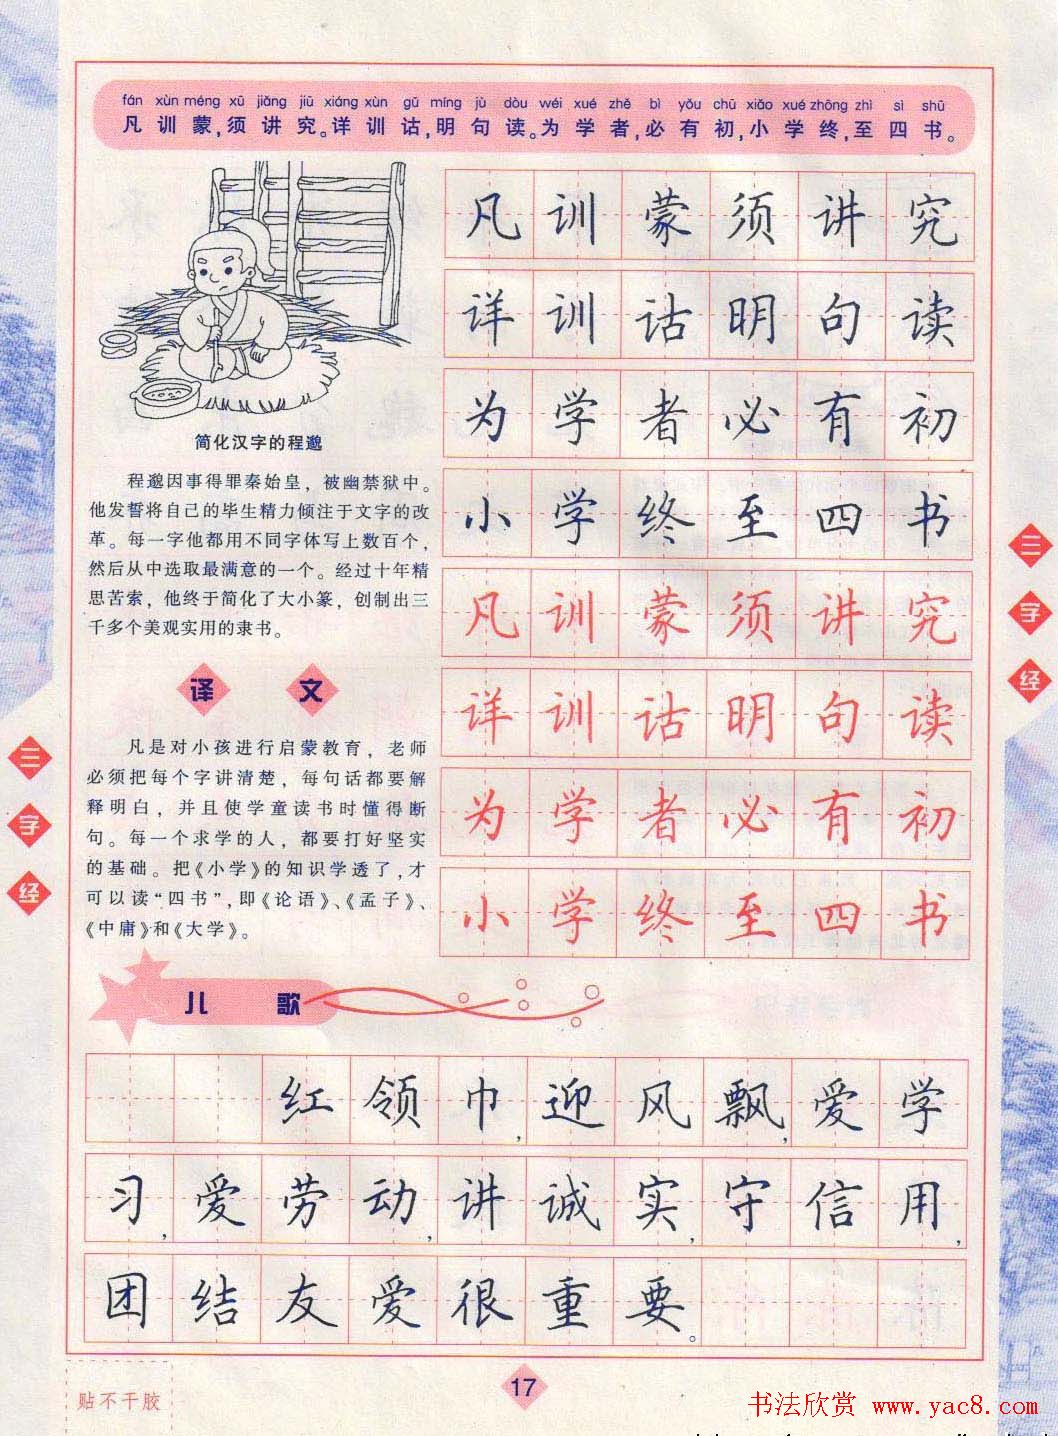 fán xùn méng xū jiǎng jiū xiáng xùn gǔ míng jù dòu wéi xué zhě bì yǒu chū xiǎo xué zhōng zhì sì shū
凡训蒙,须讲究。详训诂,明句读。为学者,必有初,小学终,至四书。
凡训蒙须讲究
详训诂明句读
为学者必有初
小学终至四书
凡训蒙须讲究
详训诂明句读
为学者必有初
小学终至四书
简化汉字的程邈
程邈因事得罪秦始皇，被幽禁狱中。
他发誓将自己的毕生精力倾注于文字的改
革。每一字他都用不同字体写上数百个，
然后从中选取最满意的一个。经过十年精
思苦索，他终于简化了大小篆，创制出三
千多个美观实用的隶书。
译文
凡是对小孩进行启蒙教育，老师
必须把每个字讲清楚，每句话都要解
释明白，并且使学童读书时懂得断
句。每一个求学的人，都要打好坚实
的基础。把《小学》的知识学透了，才
可以读“四书”，即《论语》、《孟子》、
《中庸》和《大学》。
三字经
三字经
儿歌
红领巾,迎风飘,爱学
习,爱劳动,讲诚实,守信用,
团结友爱很重要。
贴不干胶
17
书法欣赏 www.yac8.com